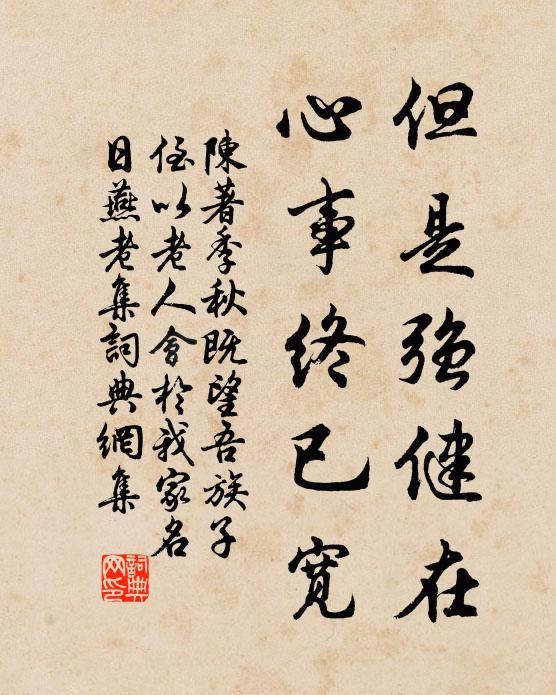 但是强健在
心事终已宽
陳著季秋既望吾族子
侄以老人會於我家名
日燕老集詞典網集
詞典网印